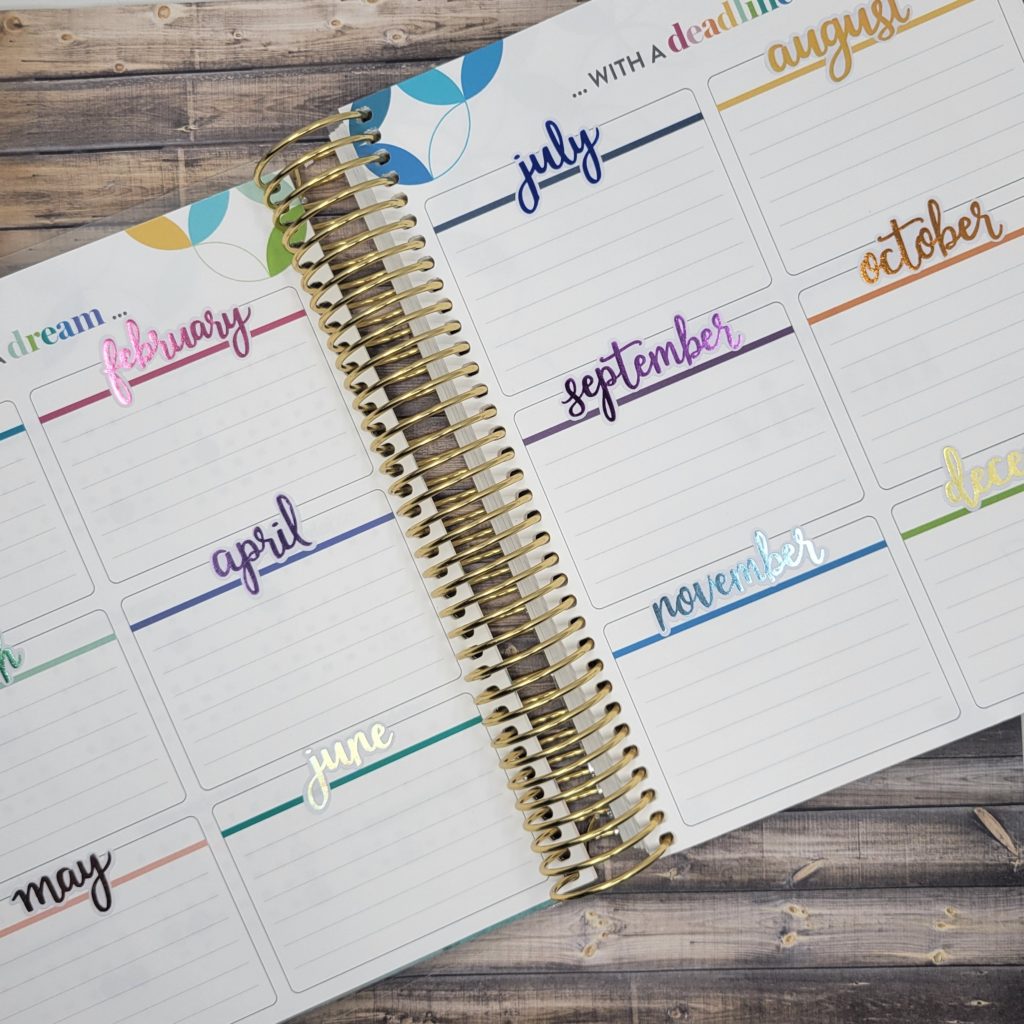 dream ...
february
april
june
may
... WITH A deadline
july
august
september
october
november